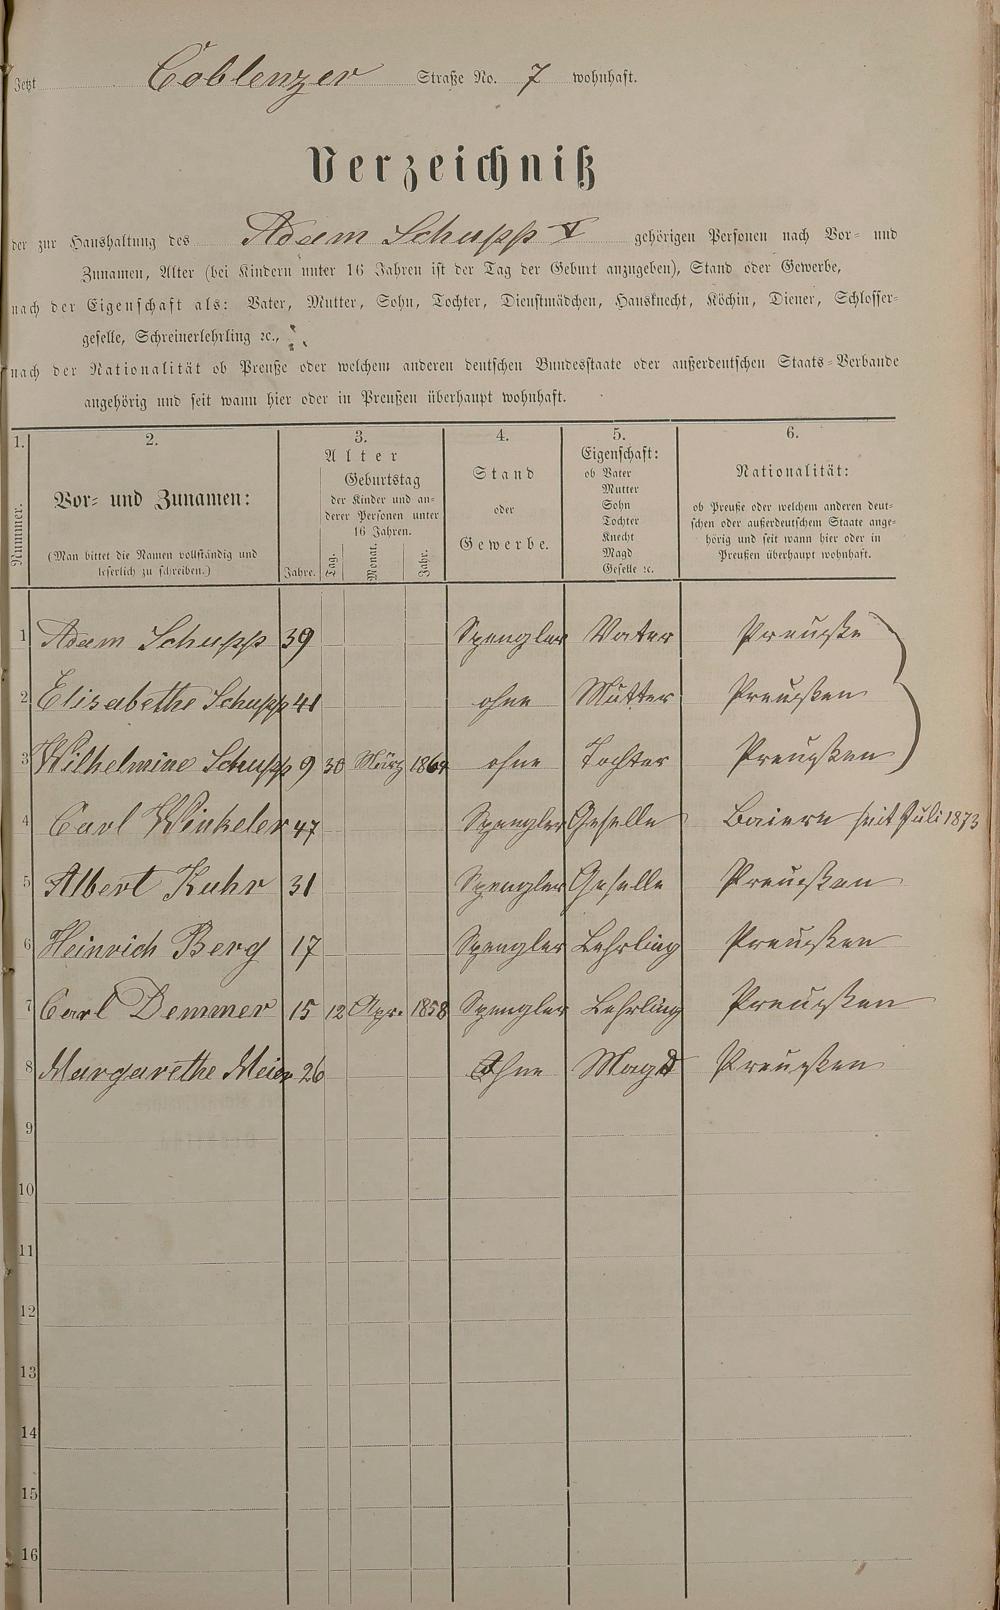 Jetzt Coblenzer Straße No. 7 wohnhaft.
Verzeichniß
der zur Haushaltung des Adam Schupp I gehörigen Personen nach Vor- und
Zunamen, Alter (bei Kindern unter 16 Jahren ist der Tag der Geburt anzugeben), Stand oder Gewerbe,
nach der Eigenschaft als: Vater, Mutter, Sohn, Tochter, Dienstmädchen, Hausknecht, Köchin, Diener, Schlosser-
geselle, Schreinerlehrling ꝛc.,
nach der Nationalität ob Preuße oder welchem anderen deutschen Bundesstaate oder außerdeutschen Staats-Verbande
angehörig und seit wann hier oder in Preußen überhaupt wohnhaft.
1. 2. 3. 4. 5. 6.
Nummer.
Vor- und Zunamen:
(Man bittet die Namen vollständig und
leserlich zu schreiben.)
Alter
Jahre.
Geburtstag
der Kinder und an-
derer Personen unter
16 Jahren.
Tag. Monat. Jahr.
Stand
oder
Gewerbe.
Eigenschaft:
ob Vater
Mutter
Sohn
Tochter
Knecht
Magd
Geselle ꝛc.
Nationalität:
ob Preuße oder welchem anderen deut-
schen oder außerdeutschem Staate ange-
hörig und seit wann hier oder in
Preußen überhaupt wohnhaft.
1 Adam Schupp 39 Spengler Vater Preuße
2 Elisabethe Schupp 41 ohne Mutter Preußen
3 Wilhelmine Schupp 9 30 März 1864 ohne Tochter Preußen
4 Carl Winkeler 47 Spengler Geselle Baiern seit Juli 1873
5 Albert Kuhr 31 Spengler Geselle Preußen
6 Heinrich Berg 17 Spengler Lehrling Preußen
7 Carl Demmer 15 12 Apr. 1858 Spengler Lehrling Preußen
8 Margarethe Meier 26 Ohne Magd Preußen
9
10
11
12
13
14
15
16